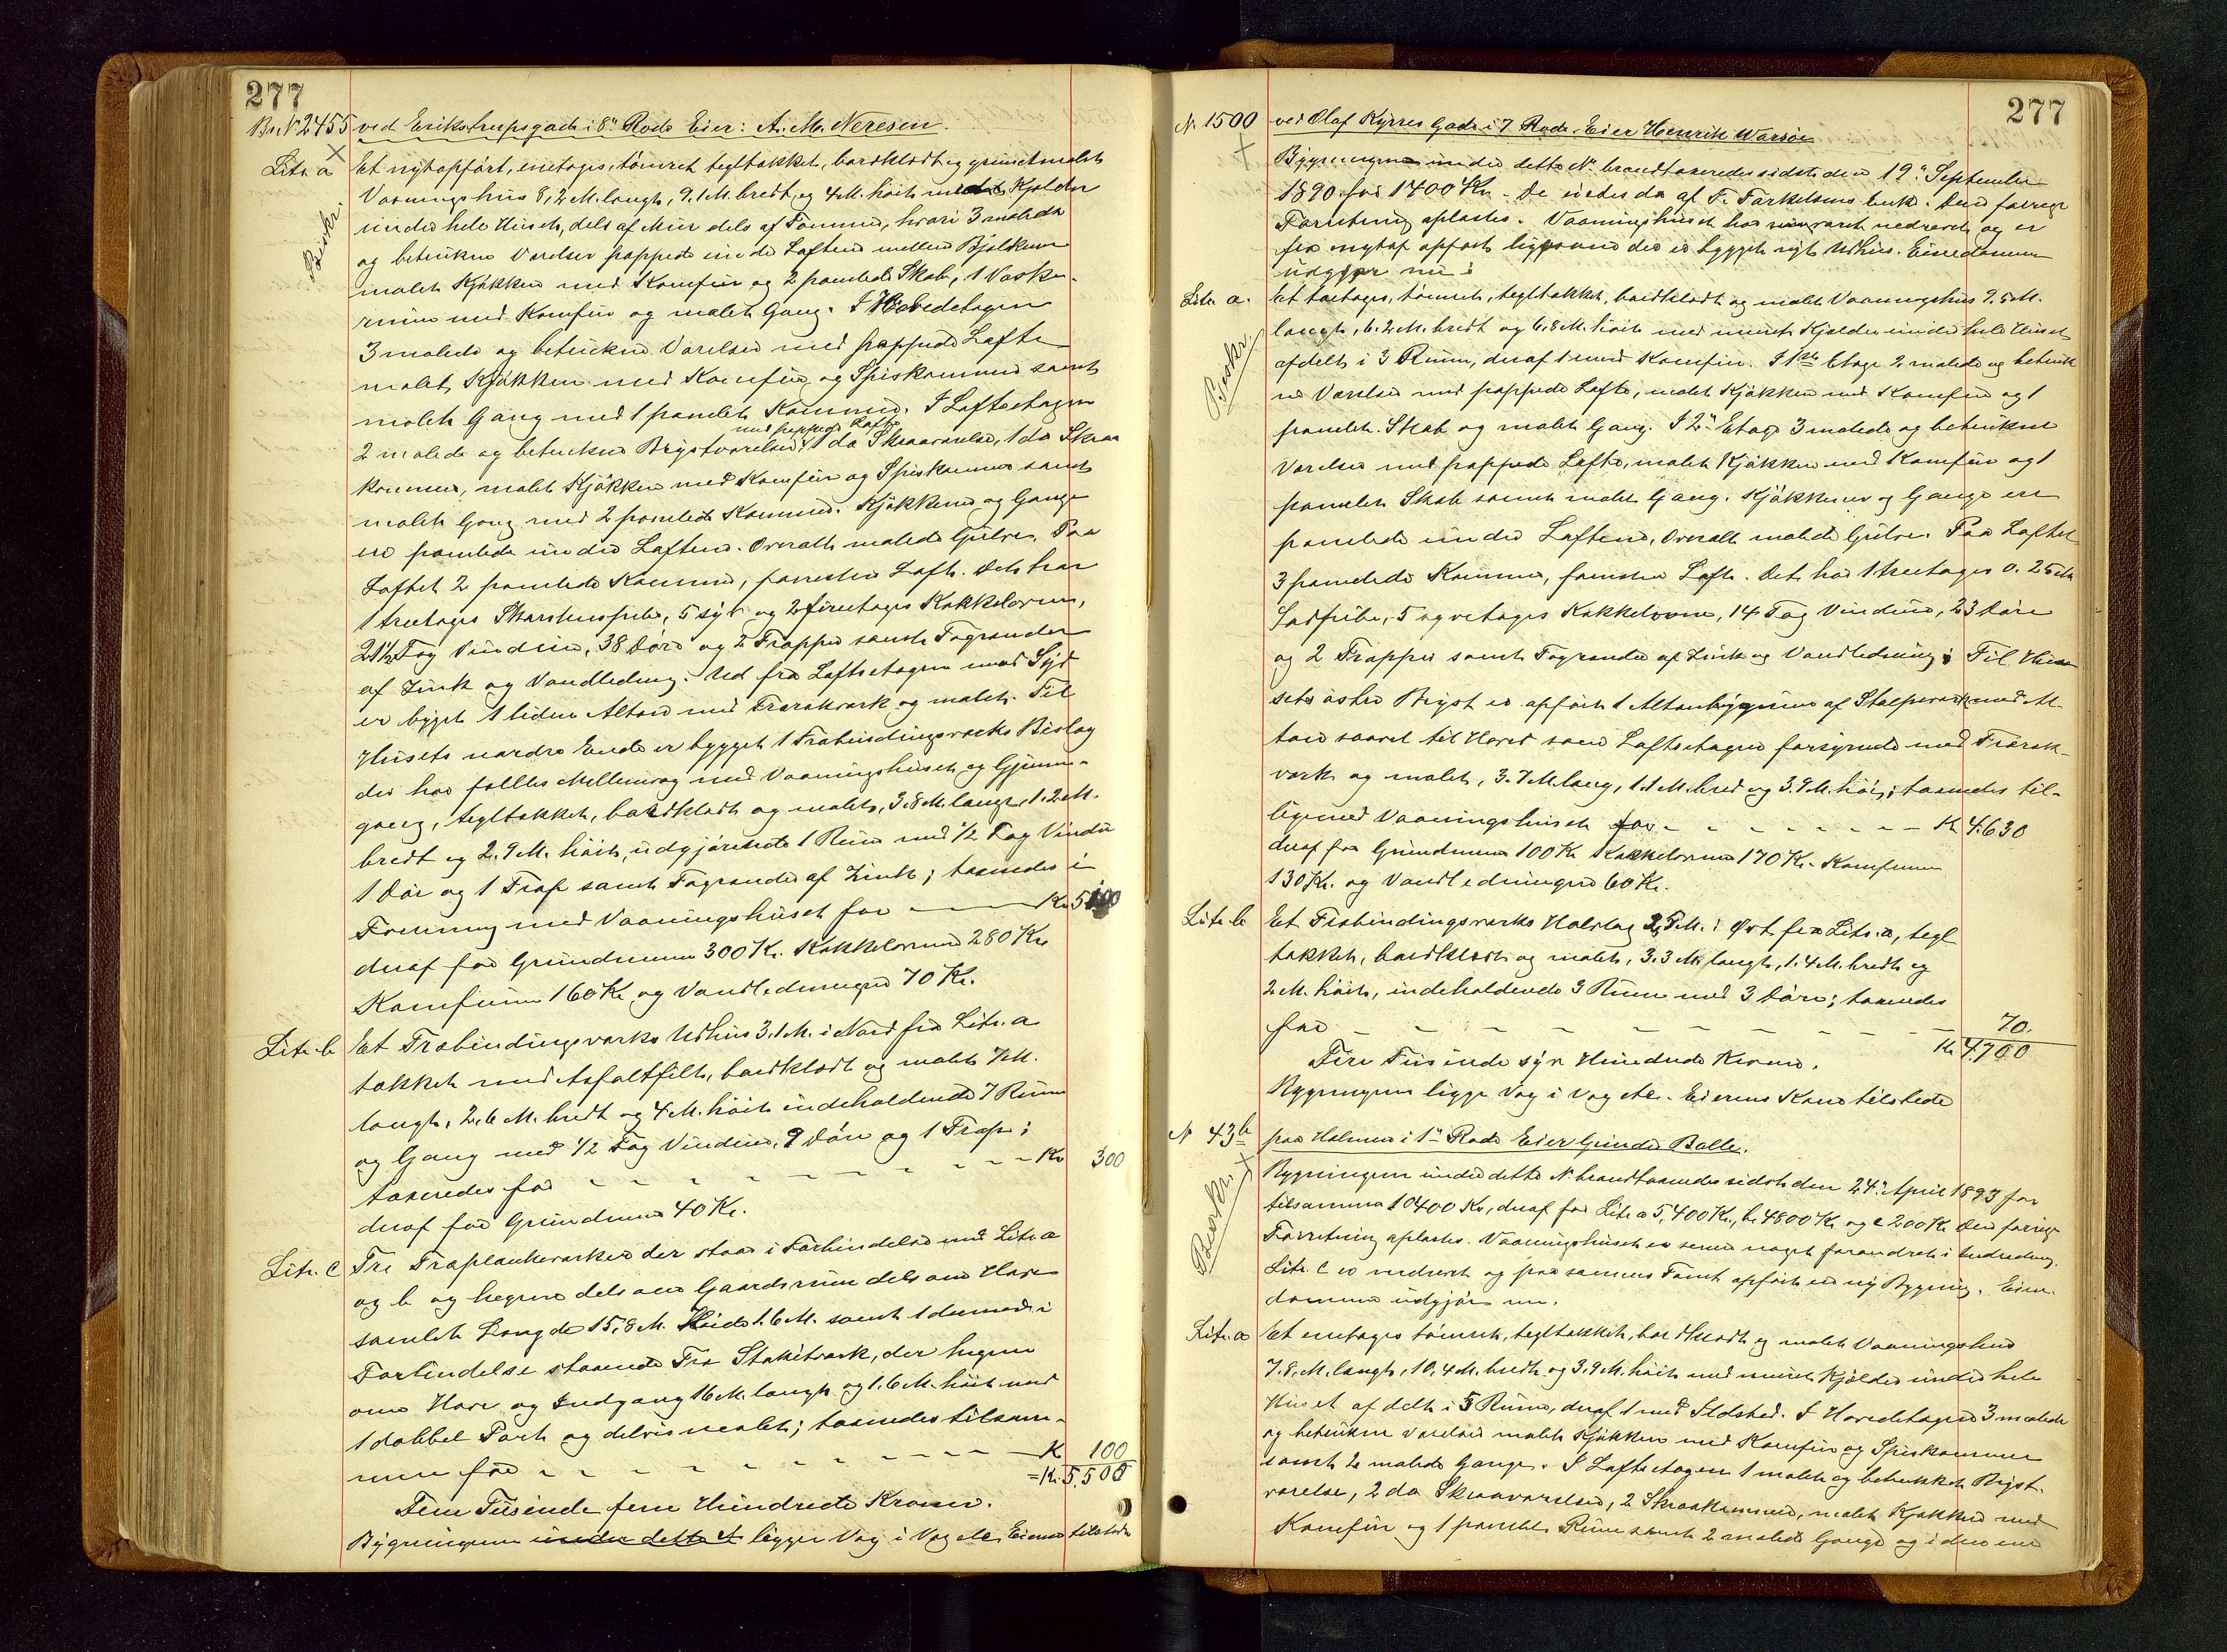 277
Br. № 2455 ved Erikstrupsgade i 8de Rode Eier: A. M. Neresen.
Litr. a Et nyt opført, enetages, tømret tegltækket, bordklædt og grundmalet
Vaaningshus 8,2 M. langt, 9,1 M. bredt og 4 M. höit med Kjelder
under hele Huset, dels af Mur dels af Tømmer, hvori 3 malede
Beskr.
og betrukne Værelser pappede under Loften mellem Bjælkerne
malet Kjøkken med Komfur og 2 panelede Skabe, 1 Vaske-
rum med Komfur og malet Gang. I Hovedetagen
3 malede og betrukne Værelser med pappede Lofte
malet Kjøkken med Komfur og Spiskammer samt
malet Gang med 1 panelet Kammer. I Loftsetagen
med pappede Lofte
2 malede og betrukne Brystværelser, 1 do Skraaværelse, 1 do Skraa
kammer, malet Kjøkken med Komfur og Spiskammer samt
malet Gang med 2 panelede Kammer. Kjøkkener og Gange
ere panelede under Loftene. Overalt malede Gulve. Paa
Loftet 2 panelede Kammer, forresten Loft. Det har
1 treetages Skorstenspibe, 5 syv og 2 fireetages Kakkelovne,
21½ Fag Vinduer, 38 Døre og 2 Trapper samt Tagrender
af Zink og Vandledning. Ud fra Loftsetagen mod Syd
er bygget 1 liden Altan med Træværk og malet. Til
Husets nordre Ende er bygget 1 Træbindingsværks Bislag
der har fælles Mellemvæg med Vaaningshuset og Gjennem-
gang, tegltækket, bordklædt og malet, 3,8 M. langt, 1,2 M.
bredt og 2,9 M. höit, udgjørende 1 Rum med ½ Fag Vindu
1 Dør og 1 Trap samt Tagrender af Zink; taxeredes i
Forening med Vaaningshuset for — Kr. 5100
deraf for Grundmuren 300 Kr. Kakkelovnene 280 Kr.
Komfurene 160 Kr. og Vandledningen 70 Kr.
Litr. b Et Træbindingsværks Udhus 3,1 M. i Nord fra Litr. a
tækket med Asfaltfilt, bordklædt og malet 7 M.
langt, 2,6 M. bredt og 4 M. höit indeholdende 7 Rum
og Gang med ½ Fag Vinduer, 9 Døre og 1 Trap;
taxeredes for - - - - - - - - Kr 300
deraf for Grundmuren 40 Kr.
Litr. c Tre Træplankeværker der staar i Forbindelse med Litr. a
og b og hegner dels om Gaardsrum dels om Have
samlet Længde 15,8 M. Høide 1,6 M. samt 1 dermed i
Forbindelse staaende Træ Stakitværk, der hegner
om Have og Indgang 16 M. langt og 1,6 M. höit med
1 dobbel Port og delvis malet; taxeredes tilsam-
men for - - - - - - - - K 100
=Kr. 5,500
Fem Tusinde fem Hundrede Kroner.
Bygningerne under dette № ligger Væg i Væg etc. Eieren tilstede

277
№ 1500 ved Olaf Kyrres Gade i 7 Rode. Eier Henrik Warsøe
Bygningerne under dette № brandtaxeredes sidst den 19de September
1890 for 1400 Kr. De eiedes da af F. Torkelsens Enke. Den forrige
Forretning oplæstes. Vaaningshuset har været nedrevet og er
fra nyt af opført ligesom der er bygget nyt Udhus. Eiendommen
udgjør nu:
Litr. a. Et toetages, tømret, tegltækket, bordklædt og malet Vaaningshus 9,5 M.
langt, 6,2 M. bredt og 6,8 M. höit med muret Kjelder under hele Huset
Beskr.
afdelt i 3 Rum, deraf 1 med Komfur. I 1ste Etage 2 malede og betruk
ne Værelser med pappede Lofte, malet Kjøkken med Komfur og 1
panelet Skab og malet Gang. I 2den Etage 3 malede og betrukne
Værelser med pappede Lofte, malet Kjøkken med Komfur og 1
panelet Skab samt malet Gang. Kjøkkener og Gange ere
panelede under Loftene. Overalt malede Gulve. Paa Loftet
3 panelede Kammer, forresten Loft. Det har 1 treetages o. 25 ctm
Jordpibe, 5 og vetages Kakkelovne, 14 Fag Vinduer, 23 Døre
og 2 Trapper samt Tagrender af Zink og Vandledning; Til Hu-
sets østre Bryst er opført 1 Altanbygning af Stolpeværk med Al-
tan saavel til Hoved som Loftsetagen forsynede med Træræk-
værk og malet, 3,7 M. lang, 1,1 M. bred og 3,9 M. höi; taxeredes til-
ligemed Vaaningshuset for - - - - - - Kr 4630
deraf for Grundmuren 100 Kr Kakkelovnene 170 Kr. Komfurene
130 Kr. og Vandledningen 60 Kr.
Litr. b Et Træbindingsværks Halvtag 2,5 M. i Øst fra Litr. a, tegl
tækket, bordklædt og malet, 3,3 M. langt, 1,4 M. bredt og
2 M. höit, indeholdende 3 Rum med 3 Døre; taxeredes
for - - - - - - - - 70.
Kr 4700
Fire Tusinde syv Hundrede Kroner.
Bygningerne ligge Væg i Væg etc. Eierens Kone tilstede
№ 43b paa Holmen i 1ste Rode Eier Gunder Balle.
Beskr.
Bygningerne under dette № brandtaxeredes sidst den 24de April 1893 for
tilsammen 10400 Kr., deraf for Litr. a 5,400 Kr., b. 4800 Kr. og c 200 Kr. Den forrige
Forretning oplæstes. Vaaningshuset er senere noget forandret i Indredning.
Litr. C er nedrevet og paa sammes Tomt opført en ny Bygning. Eien-
dommen udgjør nu.
Litr. a Et enetages tømret, tegltækket, bordklædt og malet Vaaningshus
7,8 M. langt, 10,4 M. bredt og 3,9 M. höit med muret Kjelder under hele
Huset afdelt i 5 Rum, deraf 1 med Ildsted. I Hovedetagen 3 malede
og betrukne Værelser malet Kjøkken med Komfur og Spiskammer
samt 2 malede Gange. I Loftsetagen 1 malet og betrukket Bryst-
værelse, 2 do Skraaværelser, 2 Skraakammer, malet Kjøkken med
Komfur og 1 panelet Rum samt 2 malede Gange og i den ene